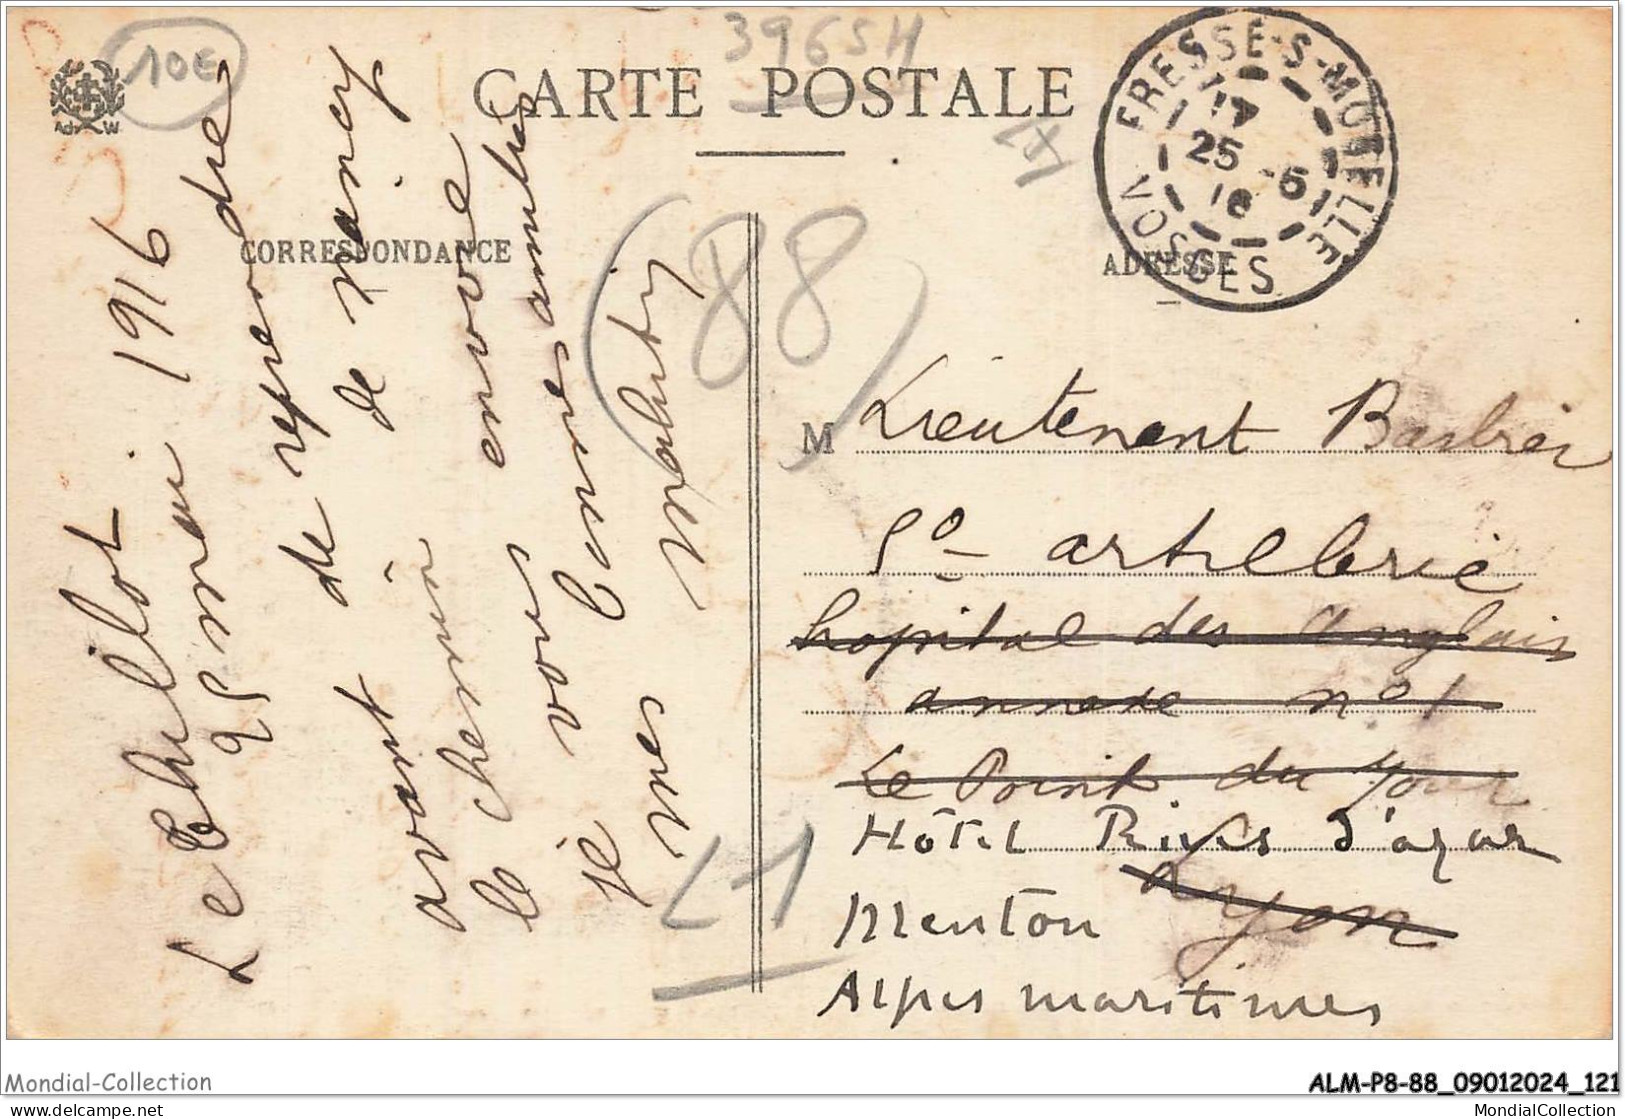 10€
3965H
CARTE POSTALE
FRESSE-S-MOSELLE
25 -5
16
VOSGES
AdW
CORRESPONDANCE
ADRESSE
Le Thillot
25 mai 1916
avant de reprendre
le chemin de Nancy
je vous envoie
mes bonnes amitiés
88
L1
M Lieutenant Barbier
5e artillerie
hopital des Anglais
annexe n° 1
Le Point du Jour
Lyon
Hôtel Rives d'azar
Menton
Alpes maritimes
Mondial-Collection
ALM-P8-88_09012024_121
www.delcampe.net
MondialCollection